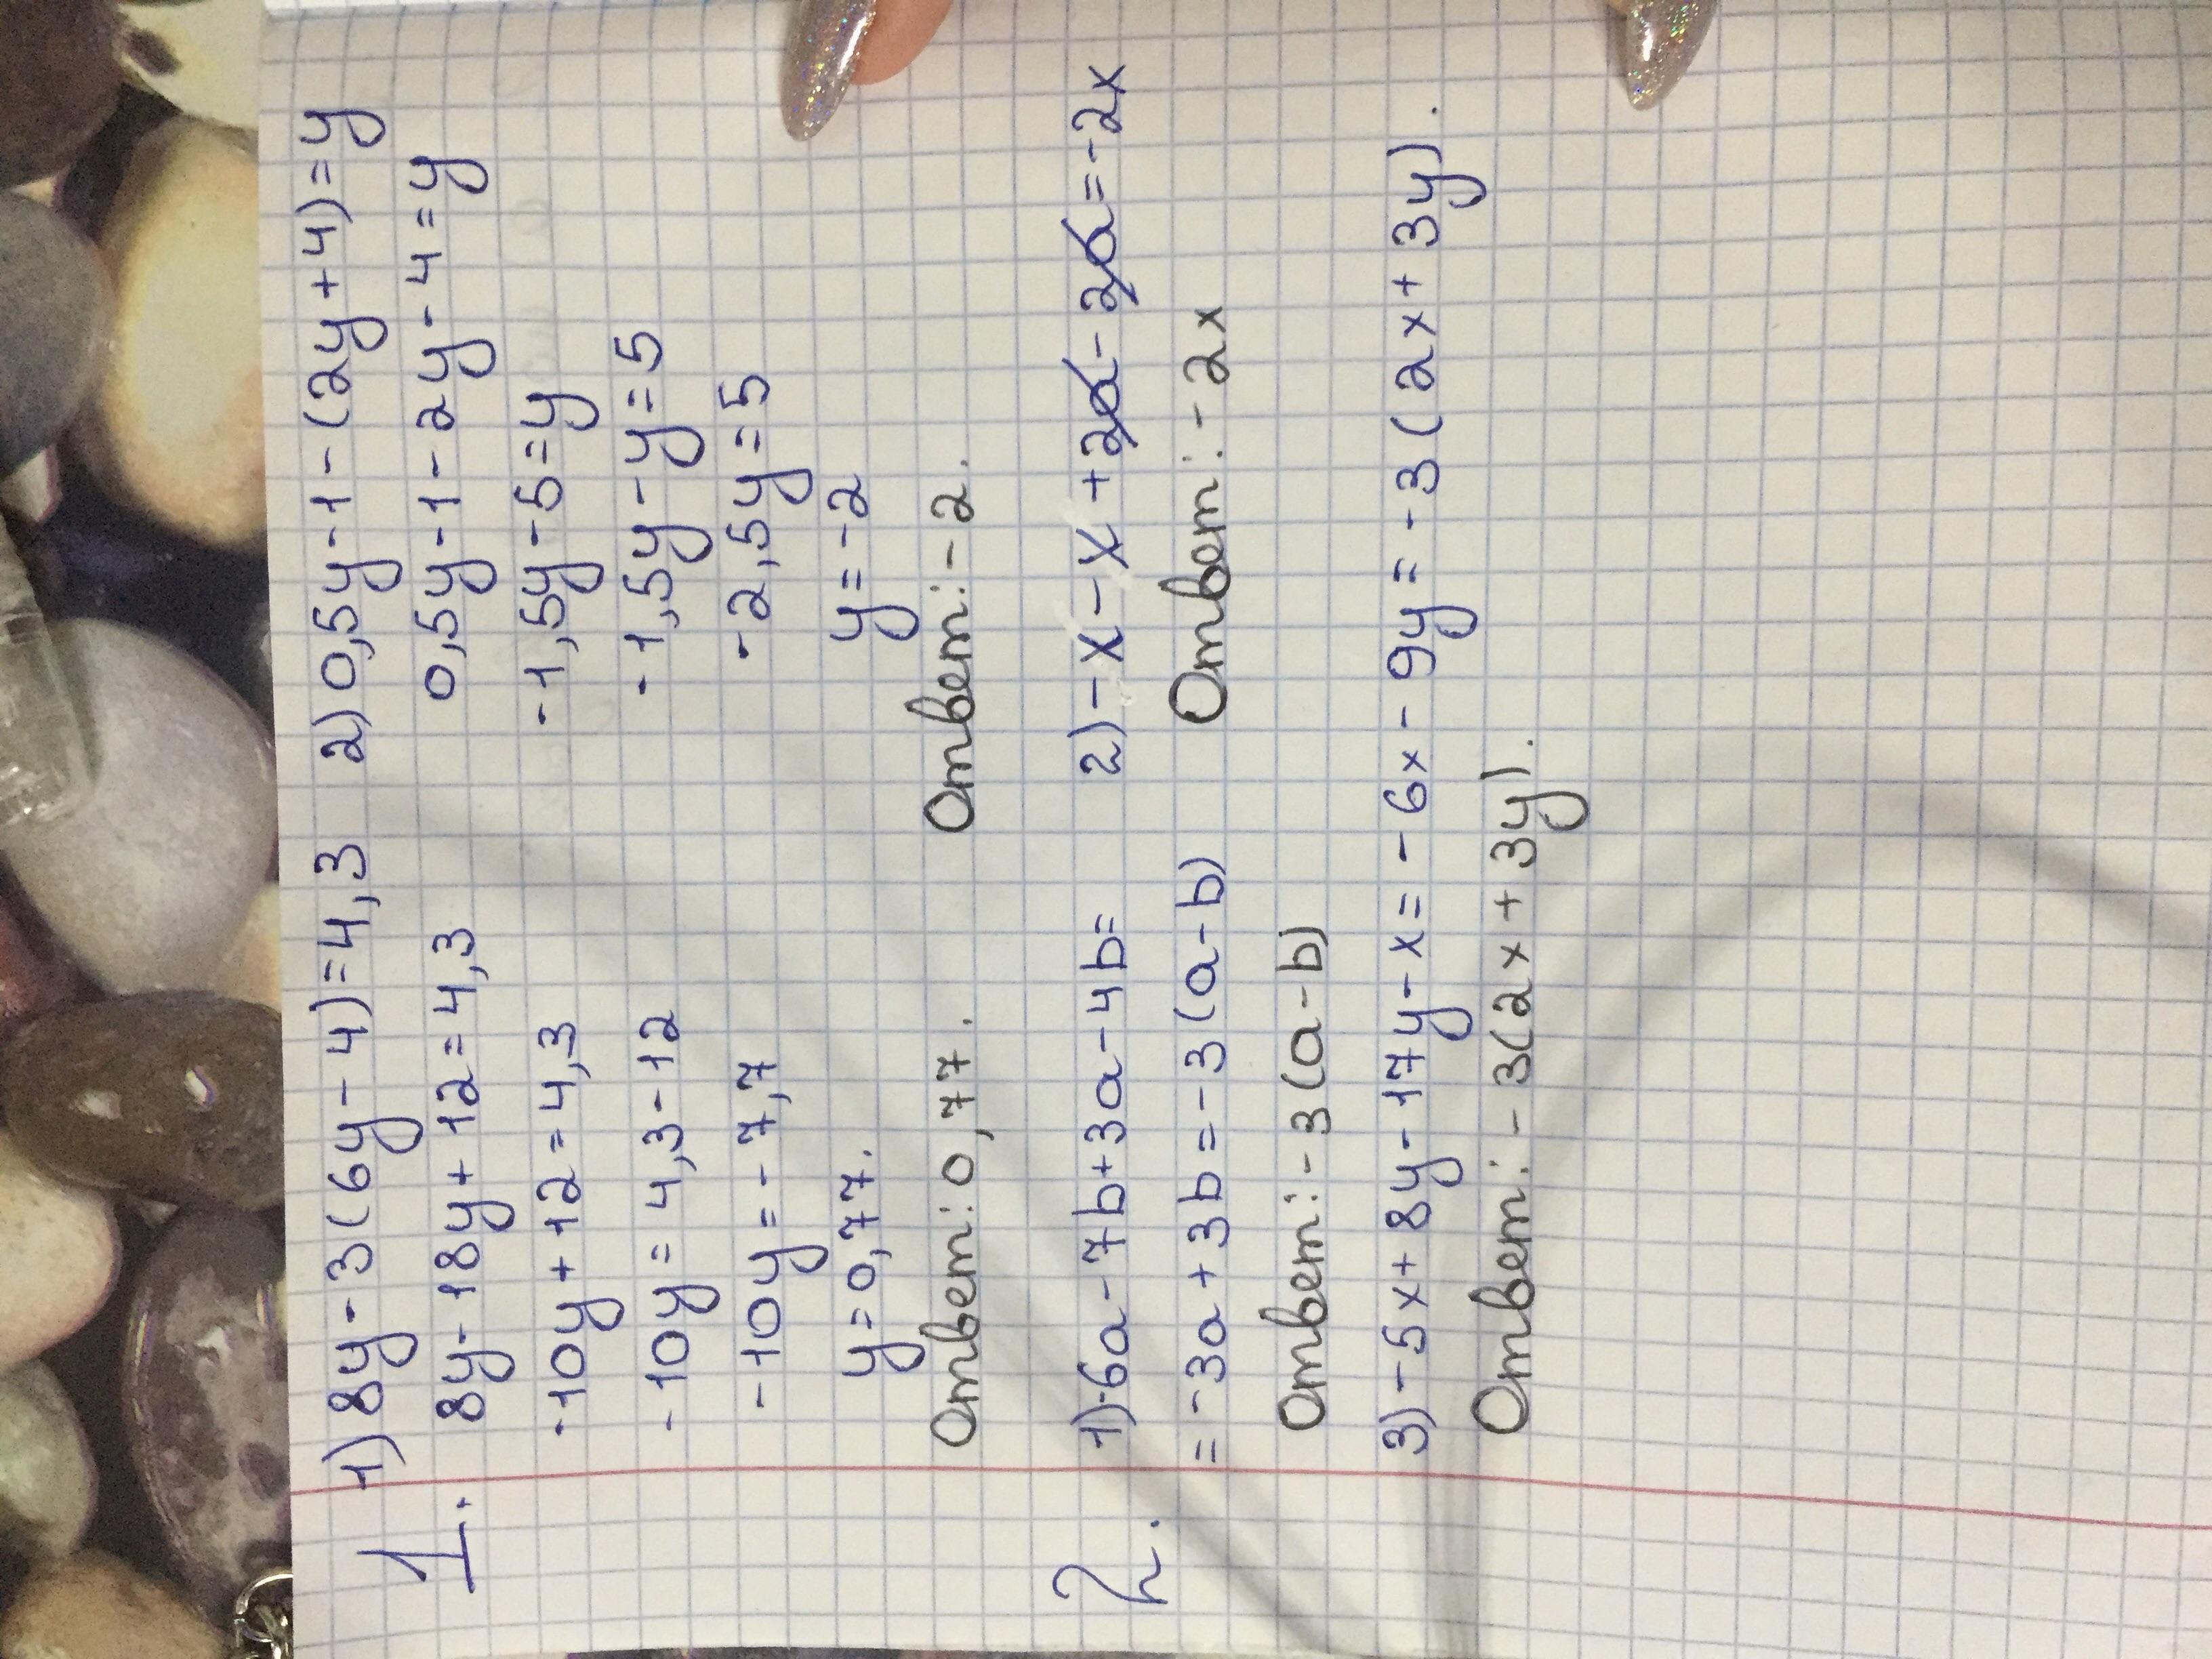 1. 1) 8y-3(6y-4)=4,3 2) 0,5y-1-(2y+4)=y
8y-18y+12=4,3 0,5y-1-2y-4=y
-10y+12=4,3 -1,5y-5=y
-10y=4,3-12 -1,5y-y=5
-10y=-7,7 -2,5y=5
y=0,77. y=-2
Ответ: 0,77. Ответ: -2.
2. 1) -6a-7b+3a-4b= 2) -x-x+2a-2a=-2x
=-3a+3b=-3(a-b) Ответ: -2x
Ответ: -3(a-b)
3) -5x+8y-17y-x=-6x-9y=-3(2x+3y).
Ответ: -3(2x+3y).